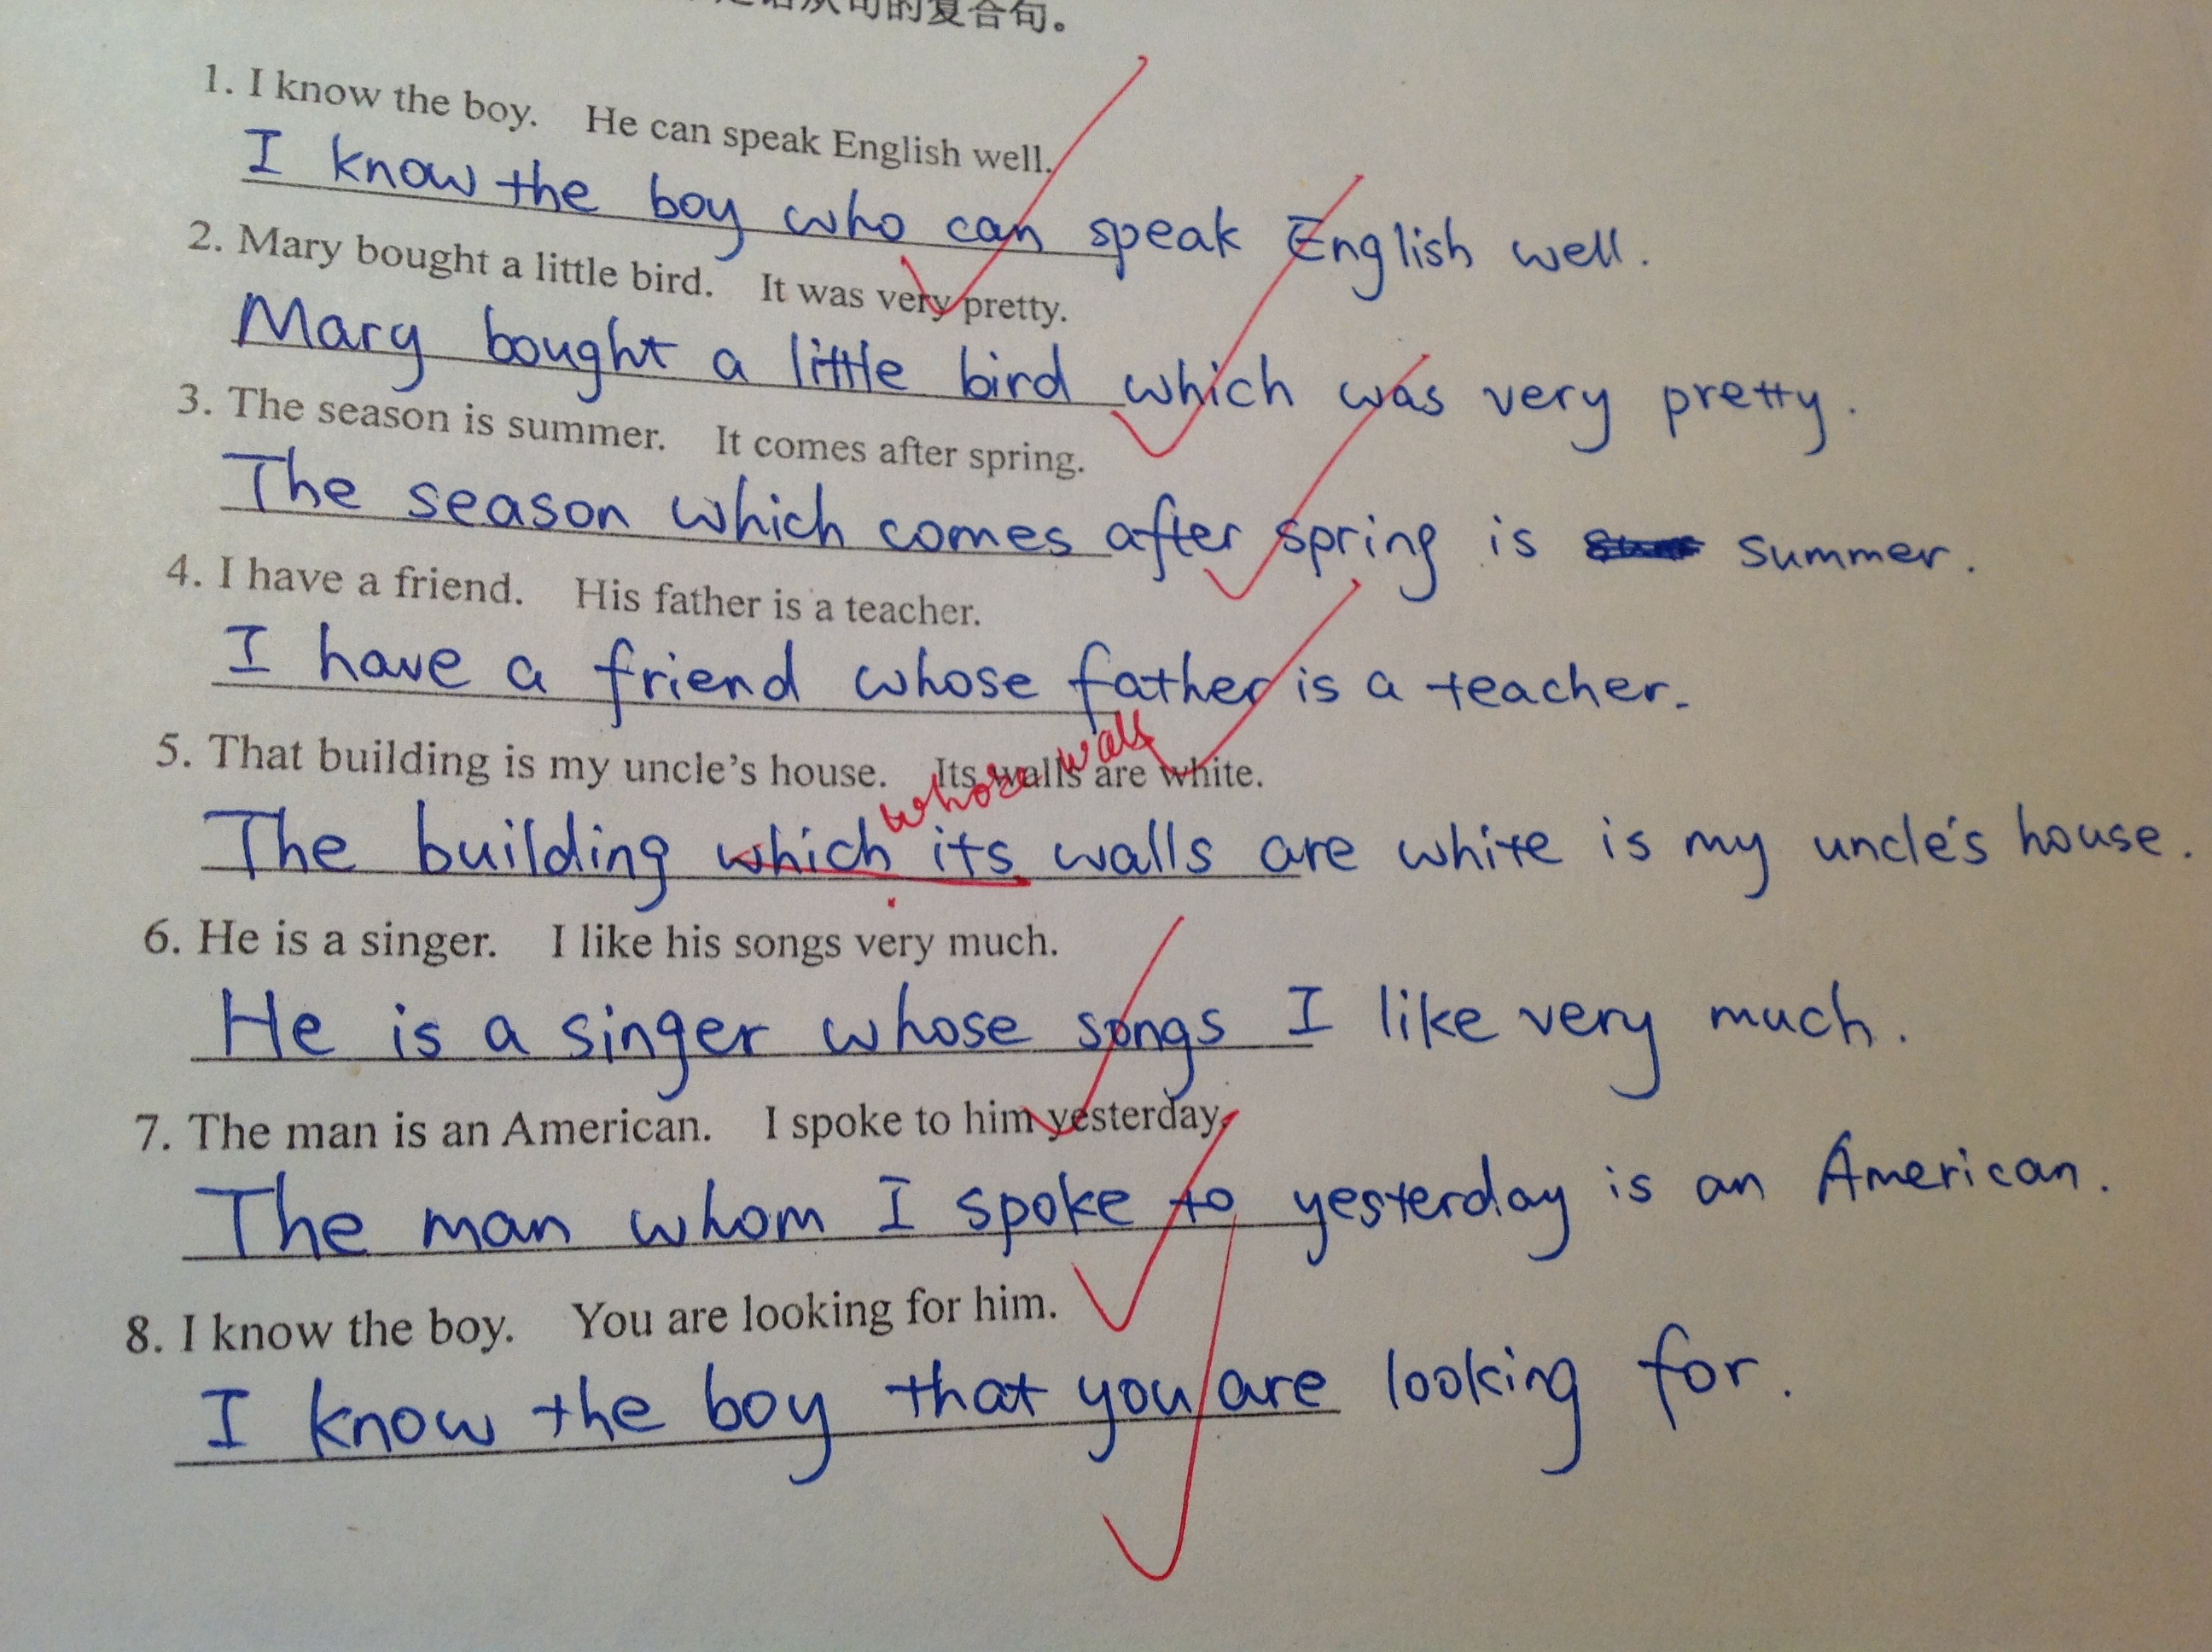 语从句的复合句。
1. I know the boy. He can speak English well.
I know the boy who can speak English well.
2. Mary bought a little bird. It was very pretty.
Mary bought a little bird which was very pretty.
3. The season is summer. It comes after spring.
The season which comes after spring is summer.
4. I have a friend. His father is a teacher.
I have a friend whose father is a teacher.
5. That building is my uncle's house. Its walls are white.
whose wall
The building which its walls are white is my uncle's house.
6. He is a singer. I like his songs very much.
He is a singer whose songs I like very much.
7. The man is an American. I spoke to him yesterday.
The man whom I spoke to yesterday is an American.
8. I know the boy. You are looking for him.
I know the boy that you are looking for.